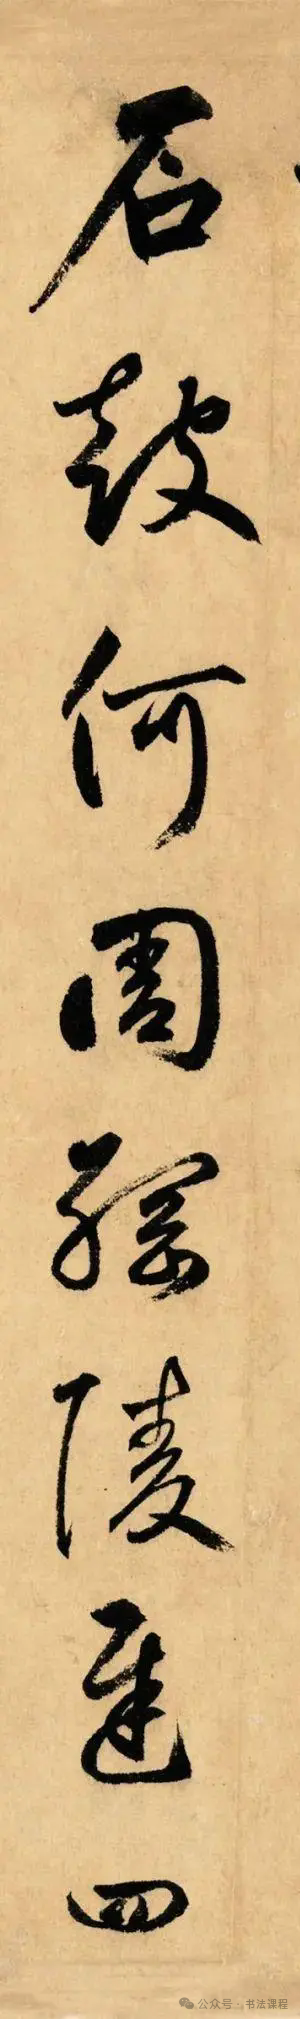 石鼓何周綱陵遲四
公众号 · 书法课程